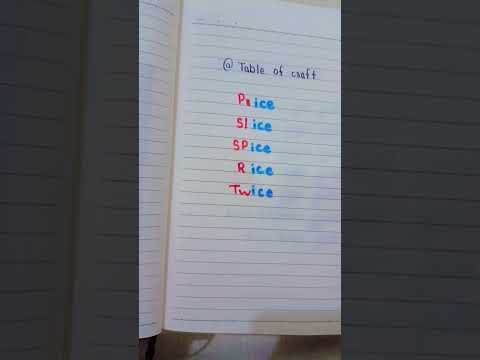 @ Table of craft
Price
Slice
SPice
Rice
Twice